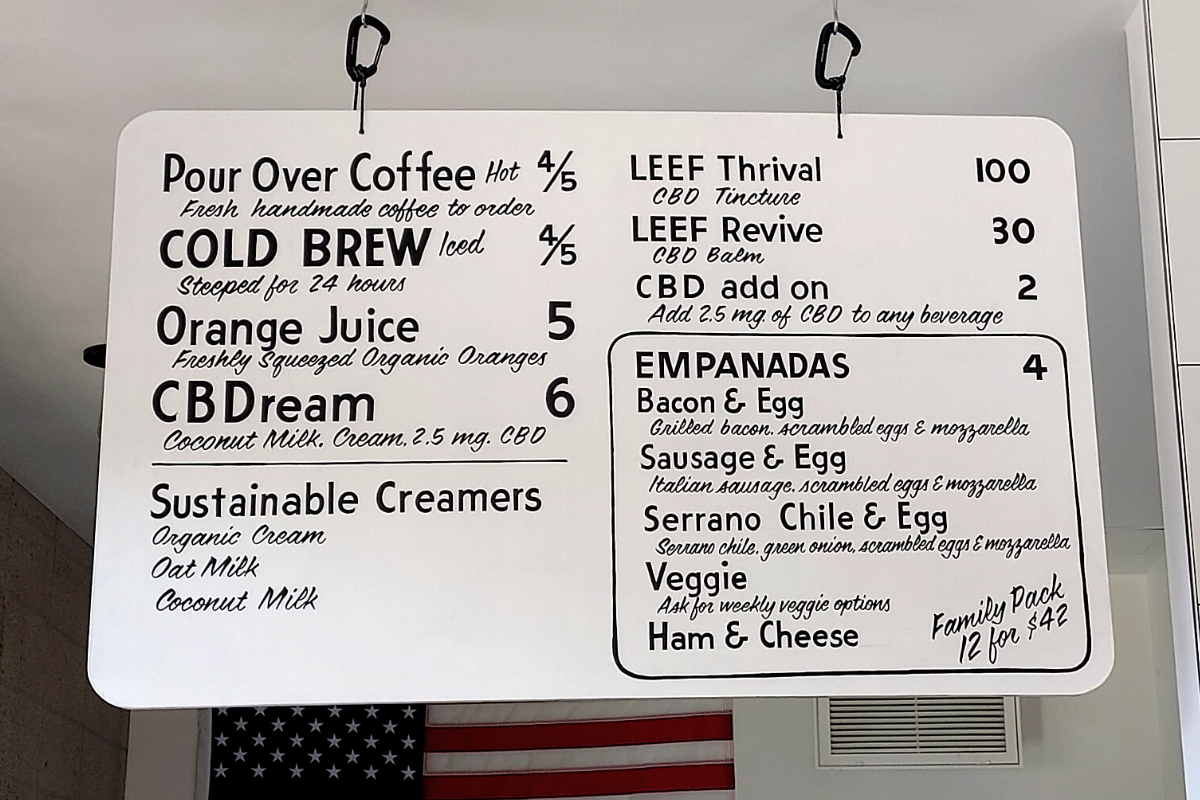 Pour Over Coffee Hot 4/5
Fresh handmade coffee to order
COLD BREW Iced 4/5
Steeped for 24 hours
Orange Juice 5
Freshly Squeezed Organic Oranges
CBDream 6
Coconut Milk, Cream, 2.5 mg. CBD
Sustainable Creamers
Organic Cream
Oat Milk
Coconut Milk
LEEF Thrival 100
CBD Tincture
LEEF Revive 30
CBD Balm
CBD add on 2
Add 2.5 mg. of CBD to any beverage
EMPANADAS 4
Bacon & Egg
Grilled bacon, scrambled eggs & mozzarella
Sausage & Egg
Italian sausage, scrambled eggs & mozzarella
Serrano Chile & Egg
Serrano chile, green onion, scrambled eggs & mozzarella
Veggie
Ask for weekly veggie options
Ham & Cheese
Family Pack
12 for $42